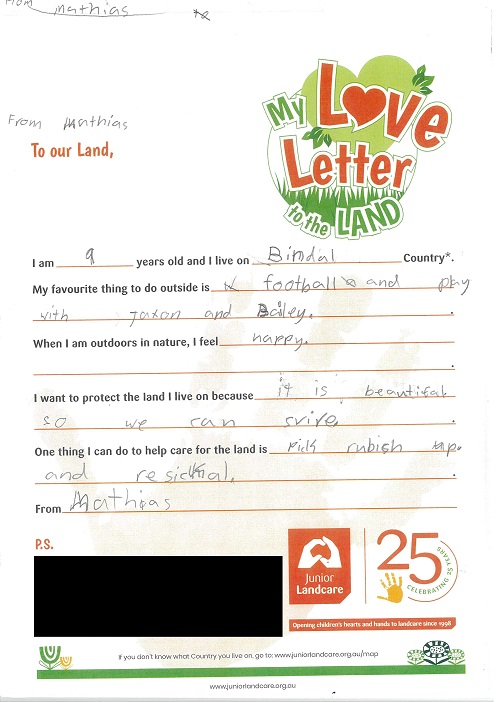 From mathias
From Mathias
To our Land,
My Love Letter to the LAND
I am 9 years old and I live on Bindal Country*.
My favourite thing to do outside is football and play
with Jaxon and Bailey.
When I am outdoors in nature, I feel happy.
I want to protect the land I live on because it is beautiful
so we can
One thing I can do to help care for the land is Pick rubish up.
and
From Mathias
P.S.
Junior Landcare
25
CELEBRATING 25 YEARS
Opening children's hearts and hands to landcare since 1998
If you don't know what Country you live on, go to: www.juniorlandcare.org.au/map
www.juniorlandcare.org.au